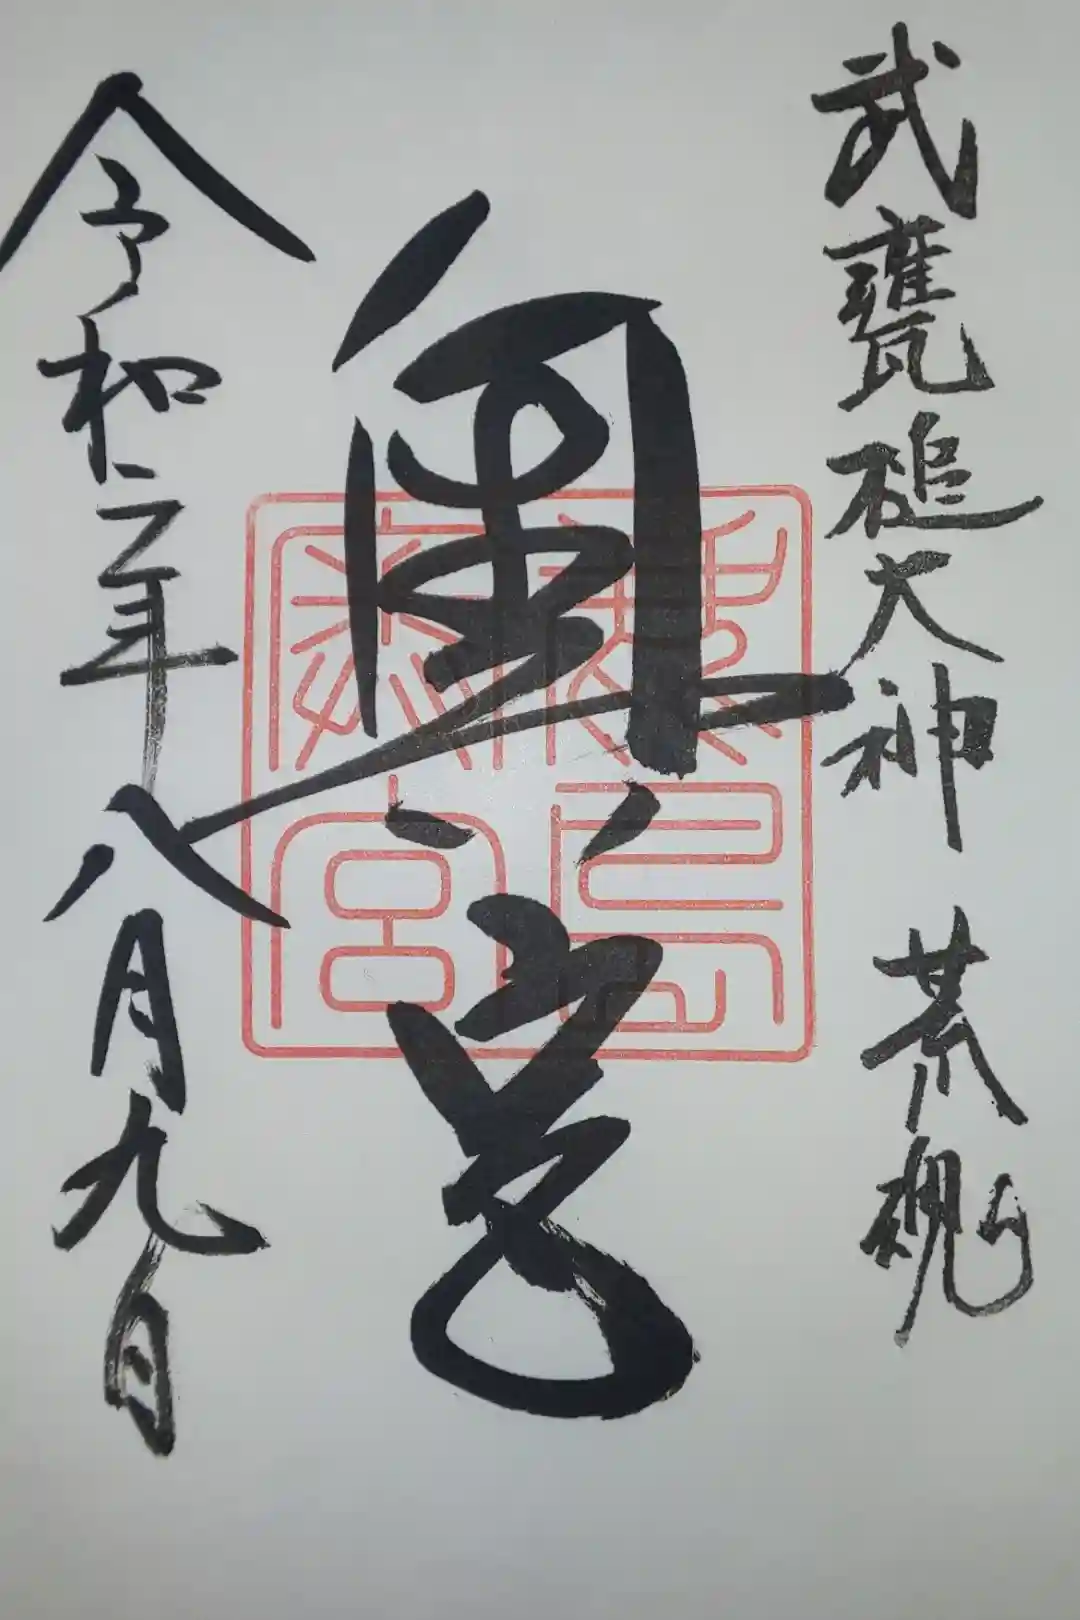 武甕槌大神 荒魂
奥宮
令和二年八月九日
鹿島奥宮